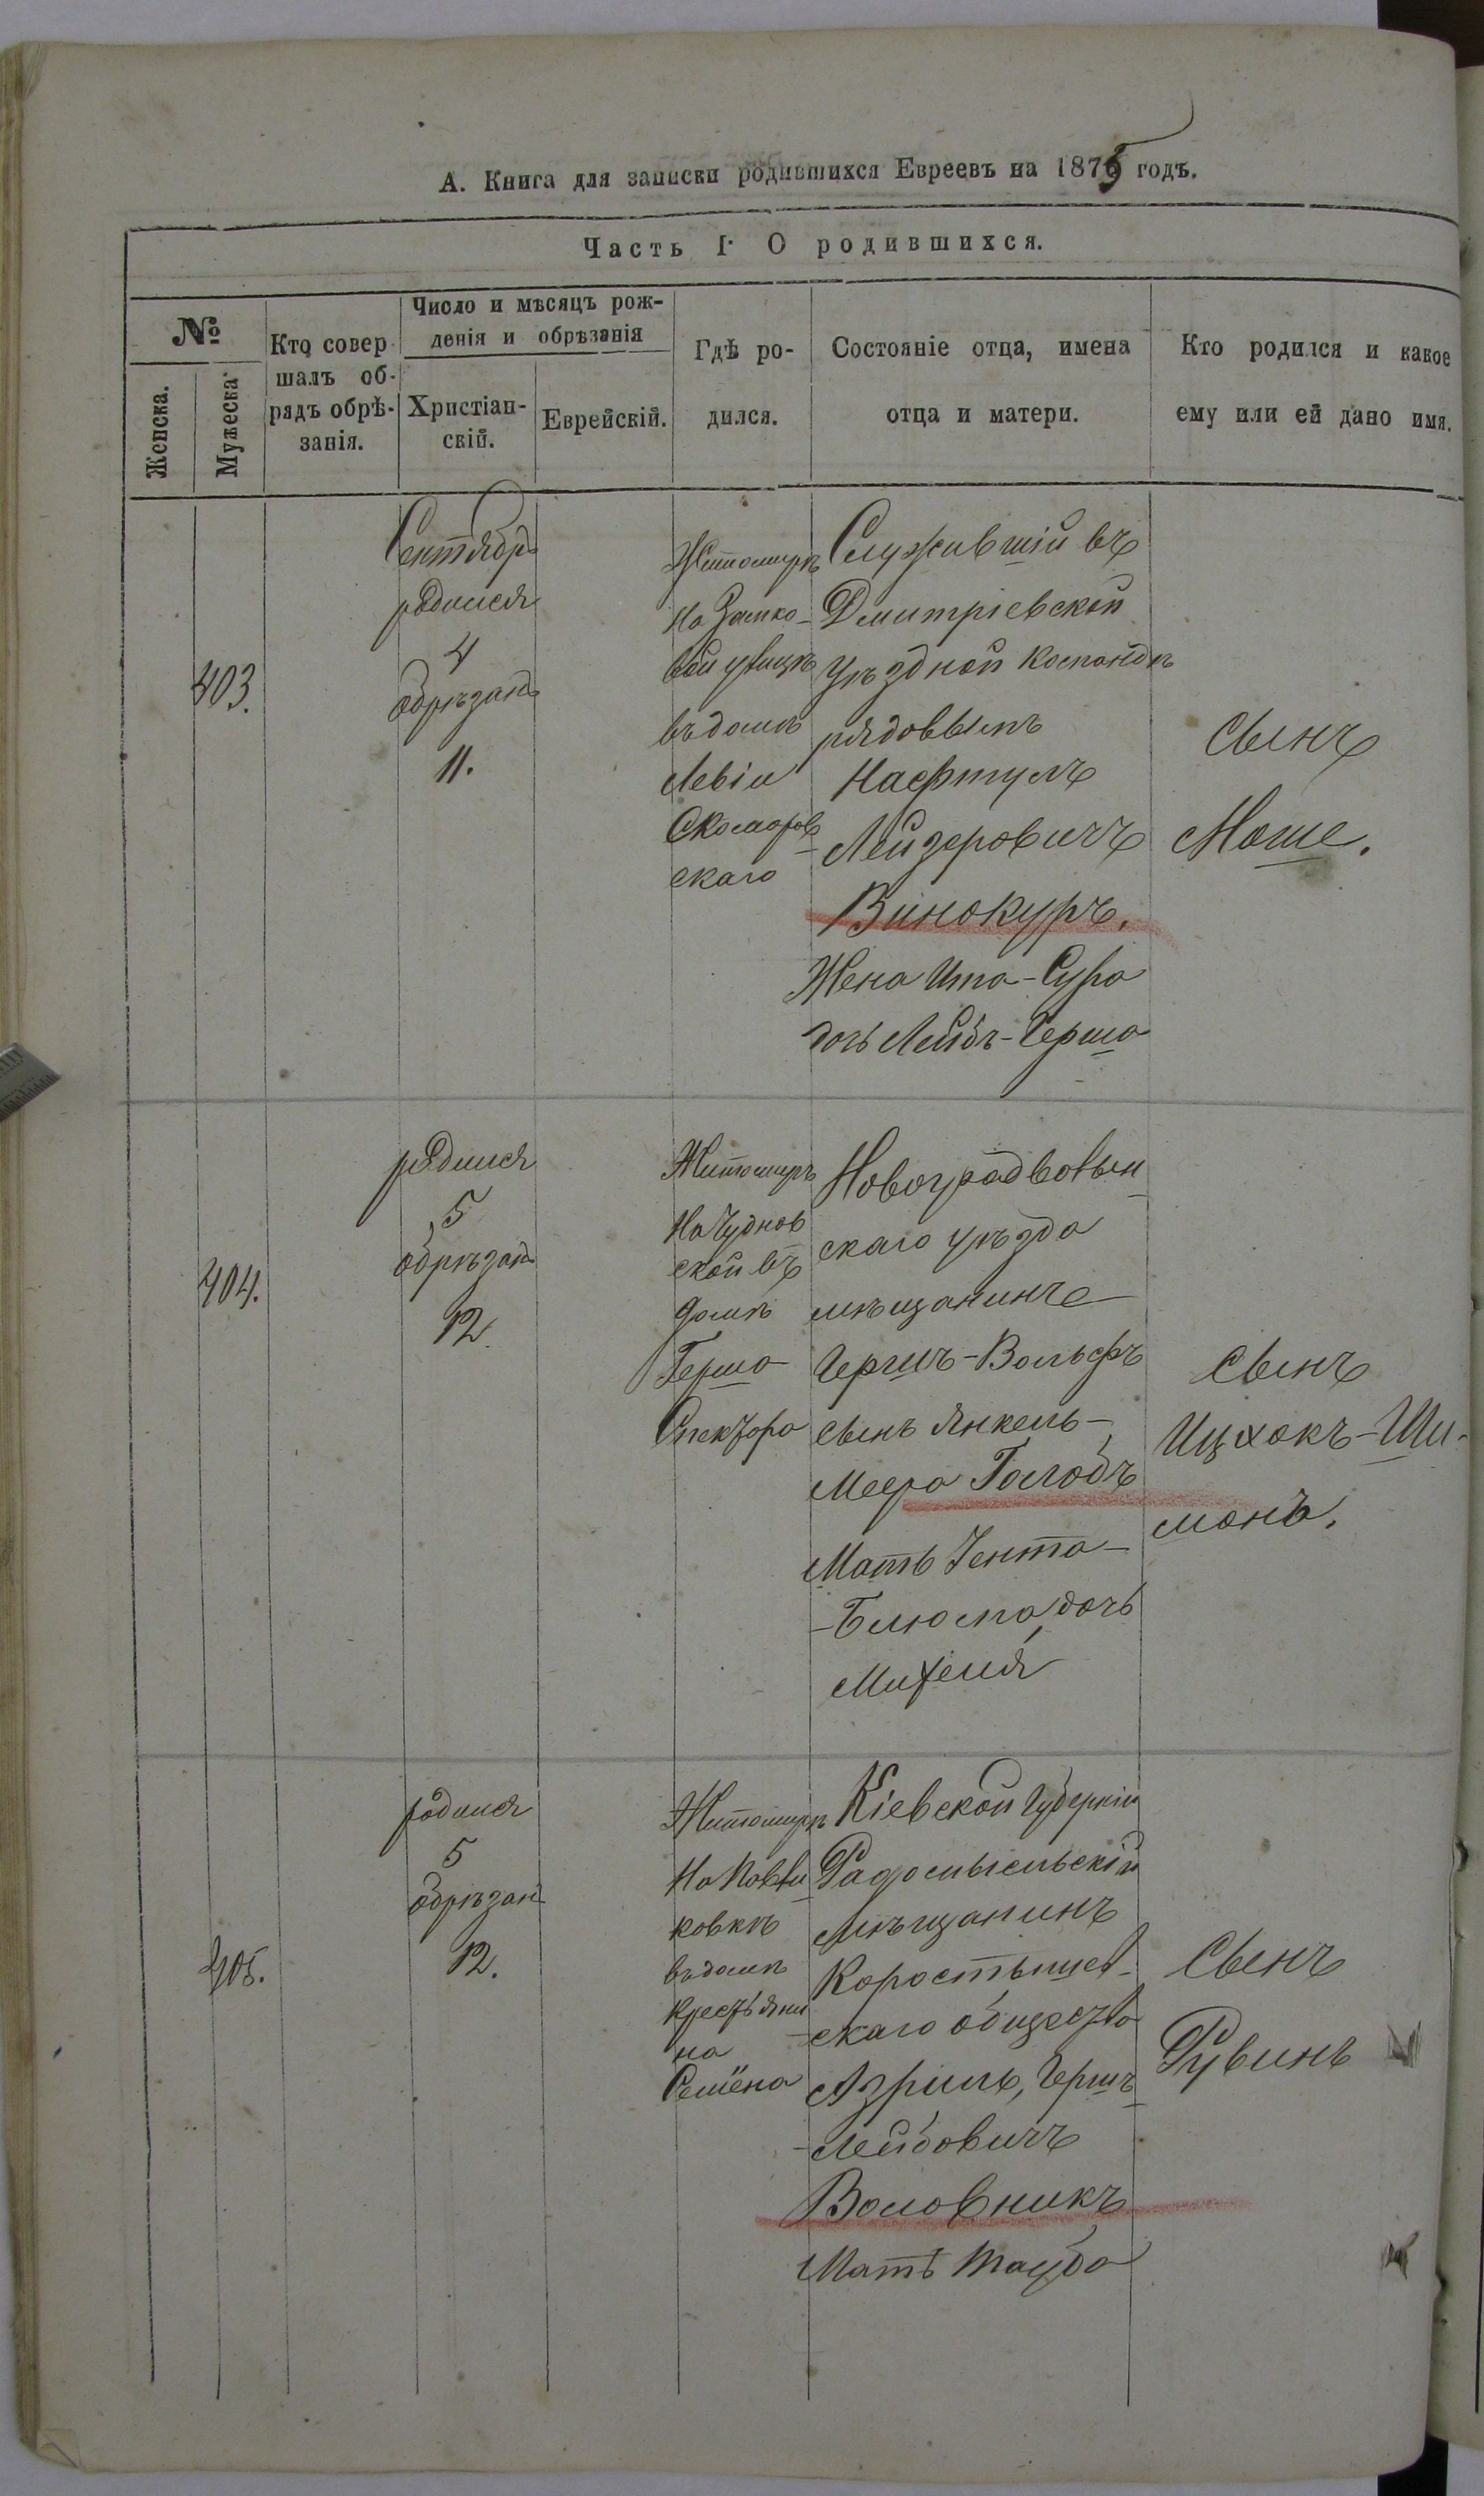 А. Книга для записки родившихся Евреевъ на 1875 годъ.
Часть I. О родившихся.
№
Женска.
Мужеска
Кто совер
шалъ об-
рядъ обрѣ-
занія.
Число и мѣсяцъ рож-
денія и обрѣзанія
Христіан-
скій.
Еврейскій.
Гдѣ ро-
дился.
Состояніе отца, имена
отца и матери.
Кто родился и какое
ему или ей дано имя.
403.
Сентябр
родился
4
обрѣзанъ
11.
Житомирѣ
на Замко-
вой улицѣ
въ домѣ
Левія
Скоморов
скаго
Служившій въ
Дмитріевской
Уѣздной командѣ
рядовымъ
Нафтулъ
Лейзеровичъ
Винокуръ.
Жена Ита-Сура
дочь Лейбъ-Герша
Сынъ
Моше.
404.
родился
5
обрѣзан
12.
Житомирѣ
на Чуднов
ской въ
домѣ
Герша
Спектора
Новоградволын
скаго уѣзда
мѣщанинъ
Гершъ-Вольфъ
сынъ Янкель-
Меера Голодъ
Мать Гента-
-Блюма, дочь
Михеля
Сынъ
Ицхокъ-Ши-
монъ.
405.
родился
5
обрѣзан
12.
Житомирѣ
на
ковкѣ
въ домѣ
крестьяни
на
Семёна
Кіевской Губерніи
Радомысльскій
Мѣщанинъ
Коростышев-
скаго общества
Азриль, Гершъ-
-Лейбовичъ
Воловникъ
Мать Тауба
Сынъ
Рувинъ